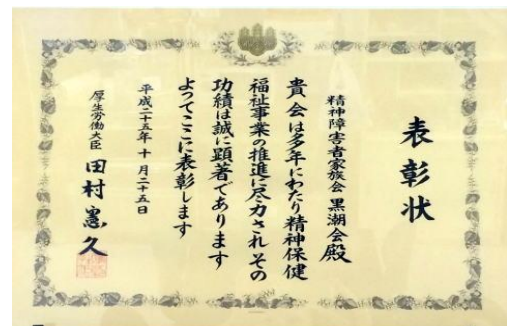 表彰状
精神障害者家族会 黒潮会殿
貴会は多年にわたり精神保健
福祉事業の推進に尽力されその
功績は誠に顕著であります
よってここに表彰します
平成二十五年十月二十五日
厚生労働大臣 田村憲久